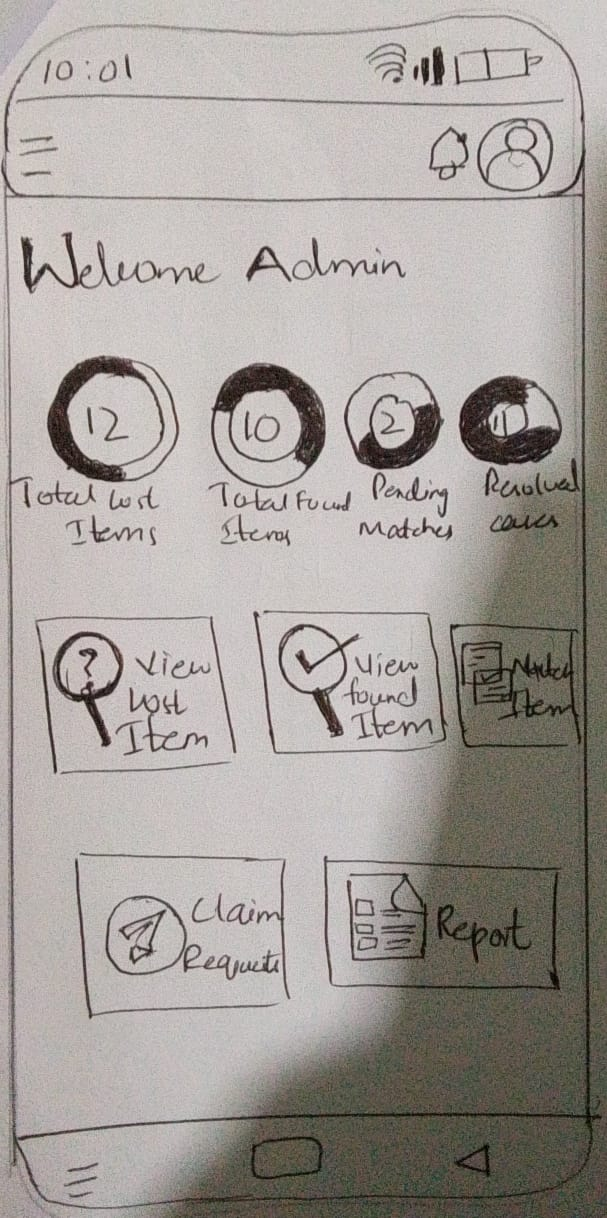 10:01
Welcome Admin
12
10
2
Total Lost
Items
Total Found
Items
Pending
Matches
Resolved
cases
?
View
Lost
Item
View
found
Item
Item
Claim
Requests
Report